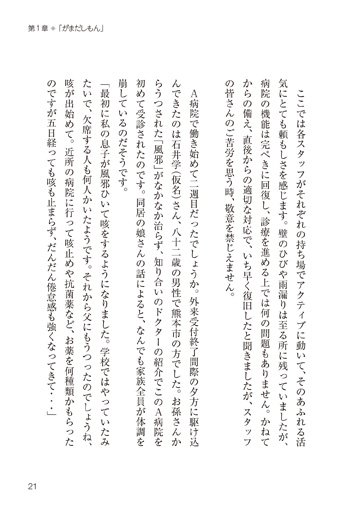 第1章 ●「がまだしもん」
ここでは各スタッフがそれぞれの持ち場でアクティブに動いて、そのあふれる活
気にとても頼もしさを感じます。壁のひびや雨漏りは至る所に残っていましたが、
病院の機能は完ぺきに回復し、診療を進める上では何の問題もありません。かねて
からの備え、直後からの適切な対応で、いち早く復旧したと聞きましたが、スタッフ
の皆さんのご苦労を思う時、敬意を禁じえません。
A病院で働き始めて二週目だったでしょうか。外来受付終了間際の夕方に駆け込
んできたのは石井学（仮名）さん、八十二歳の男性で熊本市の方でした。お孫さんか
らうつされた「風邪」がなかなか治らず、知り合いのドクターの紹介でこのA病院を
初めて受診されたのです。同居の娘さんの話によると、なんでも家族全員が体調を
崩しているのだそうです。
「最初に私の息子が風邪ひいて咳をするようになりました。学校でははやっていたみ
たいで、欠席する人も何人かいたようです。それから父にもうつったのでしょうね、
咳が出始めて。近所の病院に行って咳止めや抗菌薬など、お薬を何種類かもらった
のですが五日経っても咳も止まらず、だんだん倦怠感も強くなってきて・・・」
21